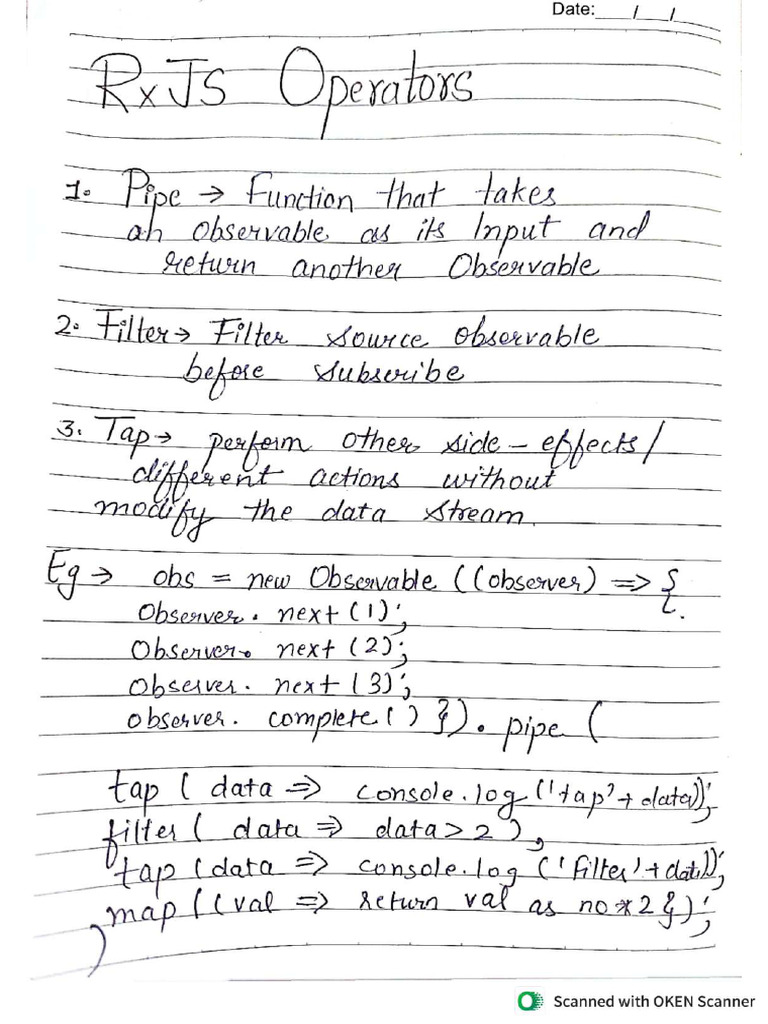 Date: / /
RxJS Operators
1. Pipe → Function that takes
an observable as its Input and
return another Observable
2. Filter → Filter source observable
before subscribe
3. Tap → perform other side - effects/
different actions without
modify the data stream.
Eg → obs = new Observable ((observer) => {
Observer. next (1);
Observer. next (2);
Observer. next (3);
observer. complete () }). pipe (
tap ( data => console.log ('tap' + data));
filter ( data => data > 2 ),
tap (data => console.log ('filter' + dat));
map ((val => return val as no * 2 });
)
Scanned with OKEN Scanner